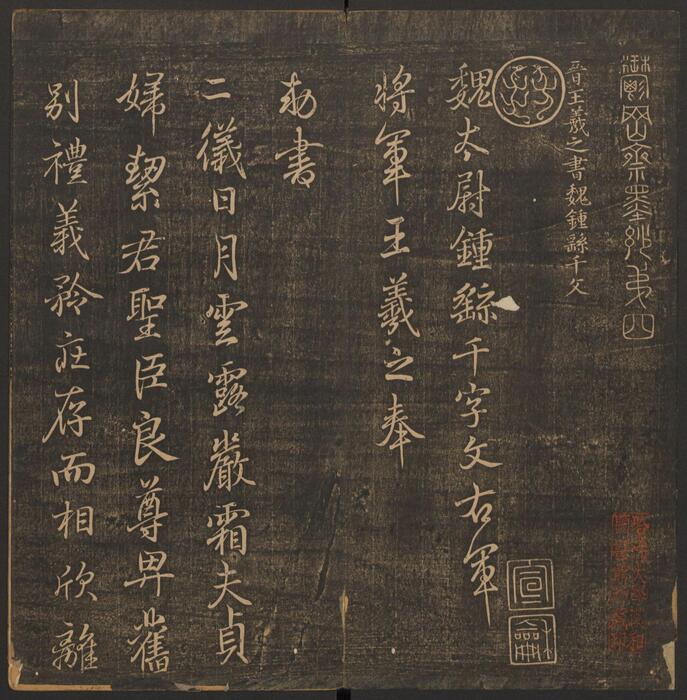 鬱岡齋墨妙弟四
晉王羲之書魏鍾繇千文
魏太尉鍾繇千字文右軍
宣
龢
將軍王羲之奉
勑書
二儀日月雲露嚴霜夫貞
婦絜君聖臣良尊卑舊
別禮義矜莊存而相欣離